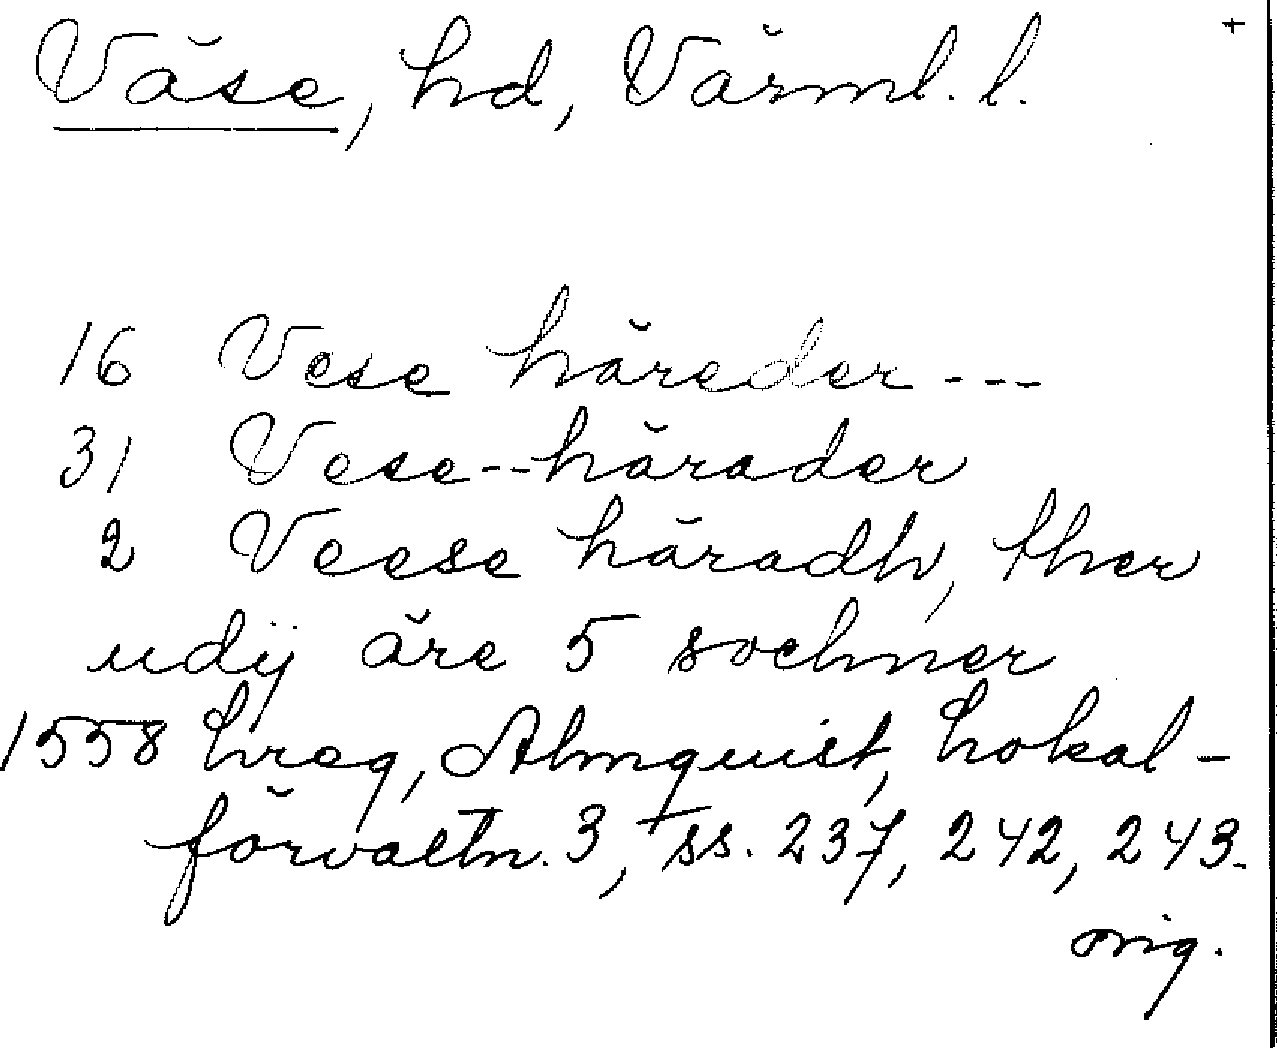 +
Väse, hd, Värml. l.
16 Vese häreder---
31 Vese--härader
2 Veese häradh, ther
udij äre 5 sochner
1558 hreg, Almquist, Lokal-
förvaltn. 3, ss. 237, 242, 243.
orig.